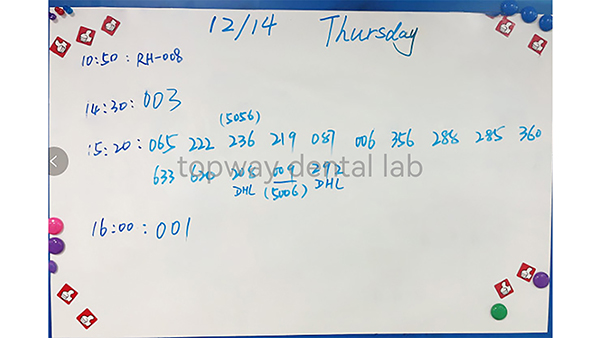 12/14 Thursday
10:50: RH-008
14:30: 003
(5056)
15:20: 065 222 236 219 087 006 356 288 285 360
topway dental lab
633 630 208 009 292
DHL (5006) DHL
16:00: 001